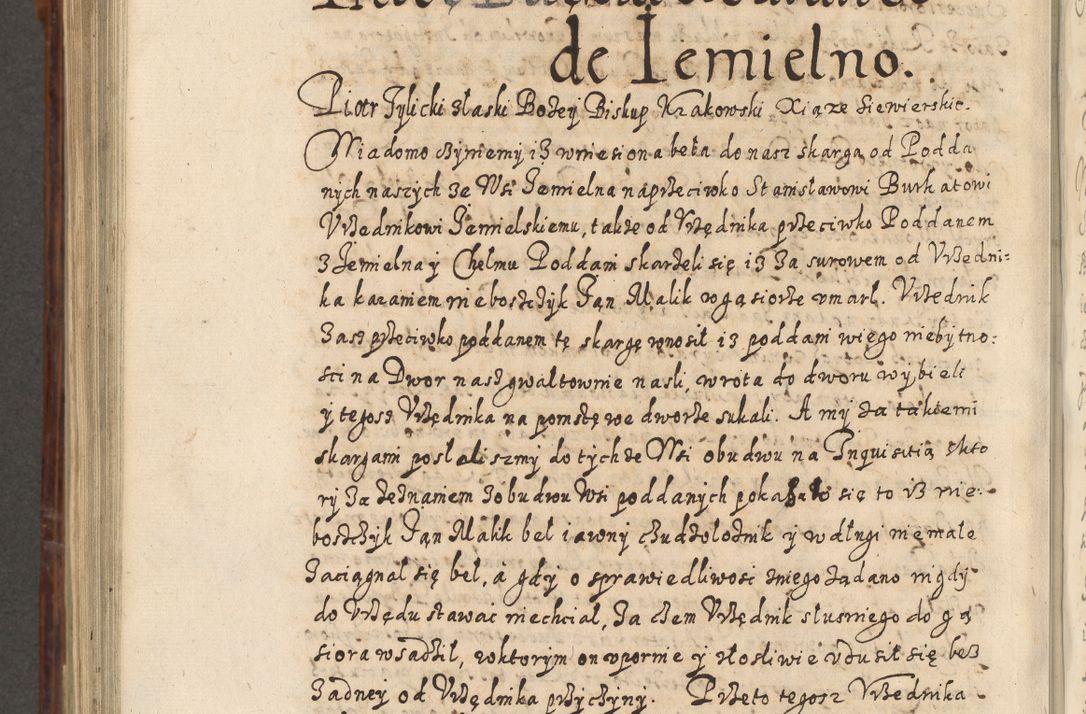 de Iemielno.
Piotr Tylicki złaski Bożey Biskup Krakowski Xiąze Siewierskie.
Wiadomo czyniemy iz wniesiona beła do nasz skarga od Podda
nych naszych ze Wsi Jemielna naprzeciwko Stanisławowi Burkatowi
Vrzednikowi Jemielskiemu, także od Vrzędnika przeciwko Poddanem
z Jemielna y Chełmu Poddani skarżeli się iz za surowem od Vrzedni=
ka karaniem nieboszczyk Jan Malik w gąsiorze vmarł. Vrzednik
zasz przeciwko poddanem tę skargę wnosił iz poddani wiego niebytno:
sci na Dwor nasz gwałtownie naśli, wrota do dworu wybieli
y tegosz Vrzędnika na pomstę we dworze sukali. A my za taktemi
skargami posłaliszmy do tych ze Wsi obudwu na Inquisitią, kto
ry za zednaniem zobudwu Wsi poddanych pokazało się to iz nie:
boszczyk Jan Malik beł iawny cżudzołożnik y w długi niemałe
zaciągnał się beł, a gdy o sprawiedliwosc zniego żądano nigdy
do Vrzędu stawac niechciał, za czem Vrzędnik słusniego do gą
siora wsadził, wktorym on vpornie y złosliwie vdusił się bez
zadney od Vrzędnika przyczyny. Przeto tegosz Vrzednika